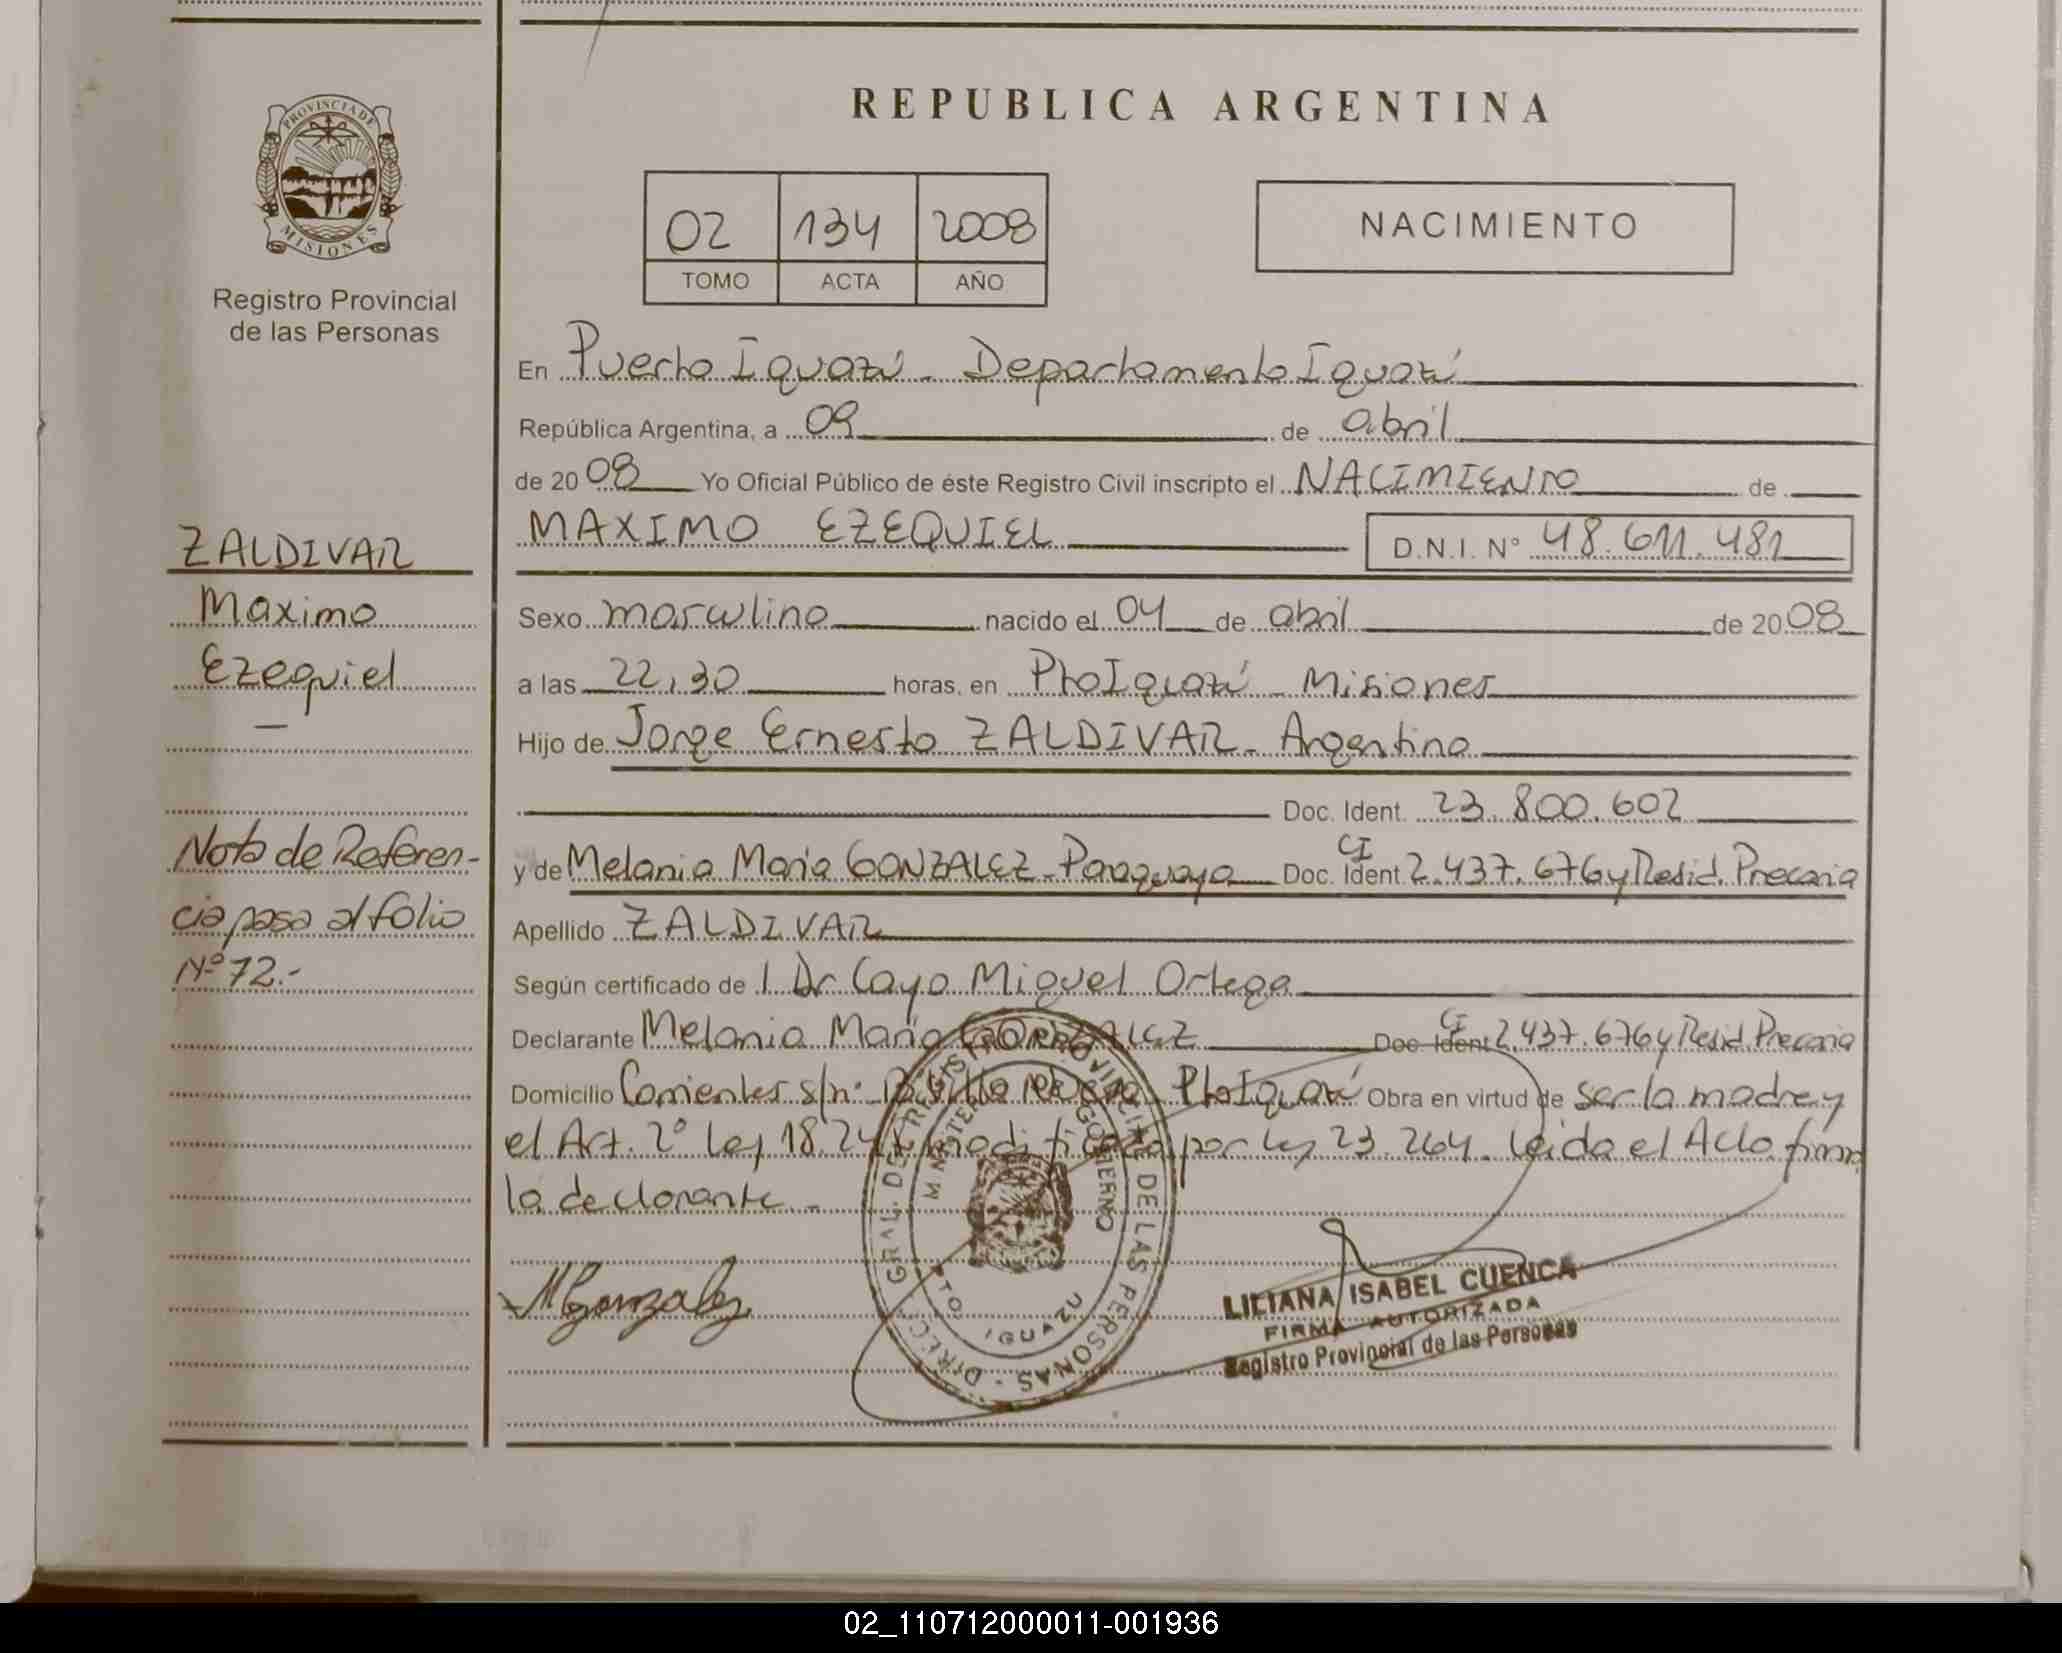 REPUBLICA ARGENTINA
PROVINCIA DE
MISIONES
Registro Provincial
de las Personas
02 134 2008
TOMO ACTA AÑO
NACIMIENTO
En Puerto Iguazú - Departamento Iguazú
República Argentina, a 09 de abril
de 2008 Yo Oficial Público de éste Registro Civil inscripto el NACIMIENTO de
MAXIMO EZEQUIEL D.N.I. N° 48.611.481
Sexo masculino nacido el 04 de abril de 2008
a las 22,30 horas, en Pto Iguazú - Misiones
Hijo de Jorge Ernesto ZALDIVAR - Argentino
Doc. Ident. 23.800.602
y de Melania Maria GONZALEZ - Paraguaya Doc. Ident CI 2.437.676 y Resid. Precaria
Apellido ZALDIVAR
Según certificado de 1 Dr Cayo Miguel Ortega
Declarante Melania Maria GONZALEZ Doc. Ident CI 2.437.676 y Resid. Precaria
Domicilio Corrientes s/n° B° Villa Pto Iguazú Obra en virtud de ser la madre y
el Art. 2° Ley 18.247 modificada por Ley 23.264. Leida el Acta firma
la declarante. -
ZALDIVAR
Maximo
Ezequiel
—
Nota de Referen-
cia pasa al folio
N° 72.-
MGonzalez
DIREC. GRAL. DEL REGISTRO PROVINCIAL DE LAS PERSONAS
MINISTERIO GOBIERNO
PTO. IGUAZU
LILIANA ISABEL CUENCA
FIRMA AUTORIZADA
Registro Provincial de las Personas
02_110712000011-001936